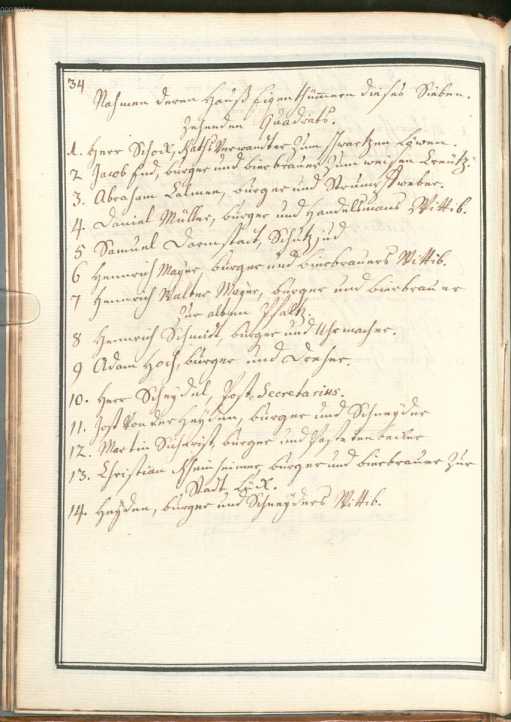 34
Nahmen deren Hauß Eigenthümmern dieses Sieben-
zehenden Quadrats.
1. Herr Schock, Rathsverwandter zum schwartzen Löwen.
2 Jacob End, burger und bierbrauer zum weisen Creutz.
3. Abraham Lalmen, burger und Strumpffweber.
4. Daniel Müller, burger und Handelsmans Wittib.
5 Samuel Darmstadt, Schutzjud
6 Henrich Mayer, burger und bierbrauers Wittib.
7 Henrich Walter Mayer, burger und bierbrauer
zur alten Pfaltz.
8 Henrich Schmidt, burger und Uhrmacher.
9 Adam Hoch, burger und Dreher.
10. Herr Scheydel, Post-Secretarius.
11. Jost von der Heyden, burger und Schneyder
12. Martin burger und Pastetenbecker
13. Christian burger und bierbrauer zur
Stadt
14. Heyden, burger und Schneyders Wittib.